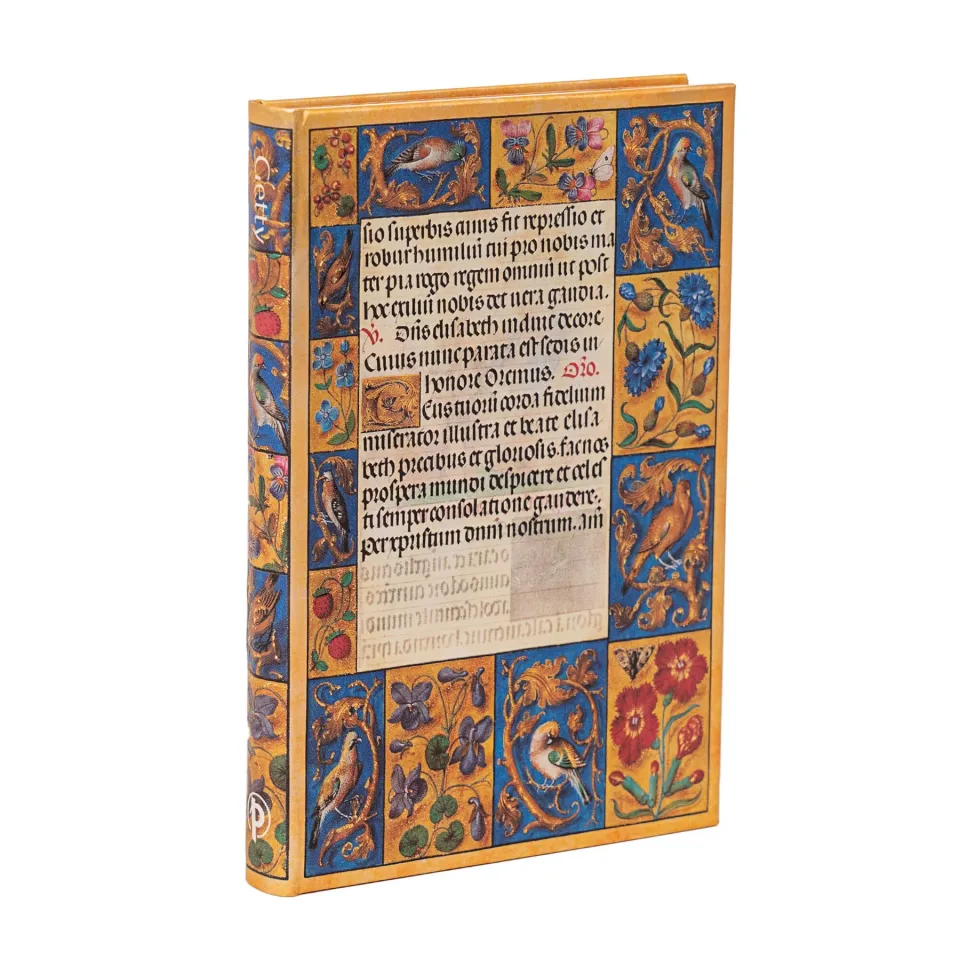 Getty
sio superbis cuius fit repressio et
robur humiliū cui pro nobis ma
ter pia rogo regem omniū ut post
hoc exiliū nobis det vera gaudia.
V. Diffusa elisabeth
Cuius nunc parata est sedis in
honore Oremus. Oro.
Eus tuorū corda fidelium
miserator illustra et beate elisa
beth precibus et gloriosis. fac nos
prospera mundi despicere et celes
ti semper consolatione gaudere.
Per xpistum dnm nostrum. am
P